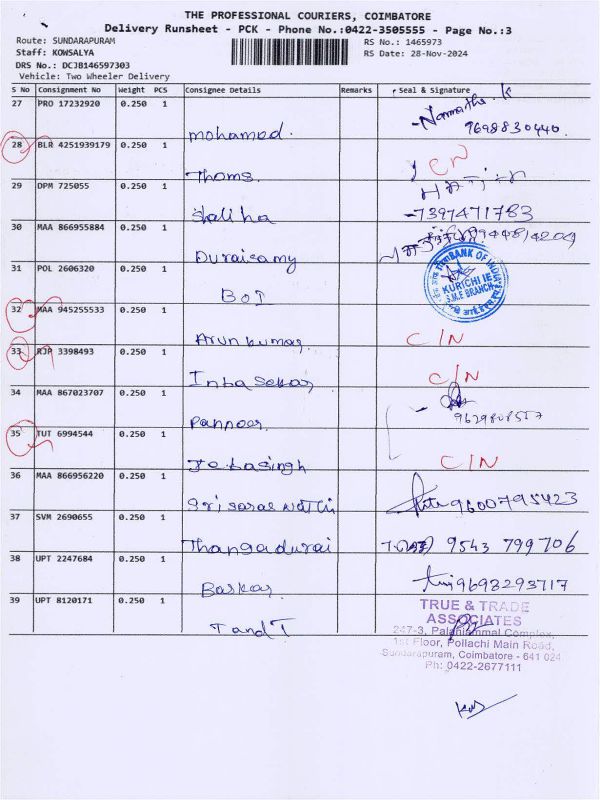 THE PROFESSIONAL COURIERS, COIMBATORE
Delivery Runsheet - PCK - Phone No.:0422-3505555 - Page No.:3
Route: SUNDARAPURAM
RS No.: 1465973
Staff: KOWSALYA
RS Date: 28-Nov-2024
DRS No.: DCJB146597303
Vehicle: Two Wheeler Delivery
S No Consignment No Weight PCS Consignee Details Remarks Seal & Signature
27 PRO 17232920 0.250 1 mohamed. 9698830440.
28 BLR 4251939179 0.250 1 Thoms. C N
29 DPM 725055 0.250 1 Staliha 7397471783
30 MAA 866955884 0.250 1 Duraisamy
31 POL 2606320 0.250 1 BOI BANK OF INDIA KURICHI IE S.M.E BRANCH
32 MAA 945255533 0.250 1 Arun kumar. C/N
33 RJP 3398493 0.250 1 Inbasekar C/N
34 MAA 867023707 0.250 1 Panneer.
35 TUT 6994544 0.250 1 Jebasingh C/N
36 MAA 866956220 0.250 1 9600795423
37 SVM 2690655 0.250 1 Thangadurai 9543 799706
38 UPT 2247684 0.250 1 Baskar. 9693293717
39 UPT 8120171 0.250 1 T and T
TRUE & TRADE
ASSOCIATES
247-3, Palaniammal Complex,
1st Floor, Pollachi Main Road,
Sundarapuram, Coimbatore - 641 024
Ph: 0422-2677111